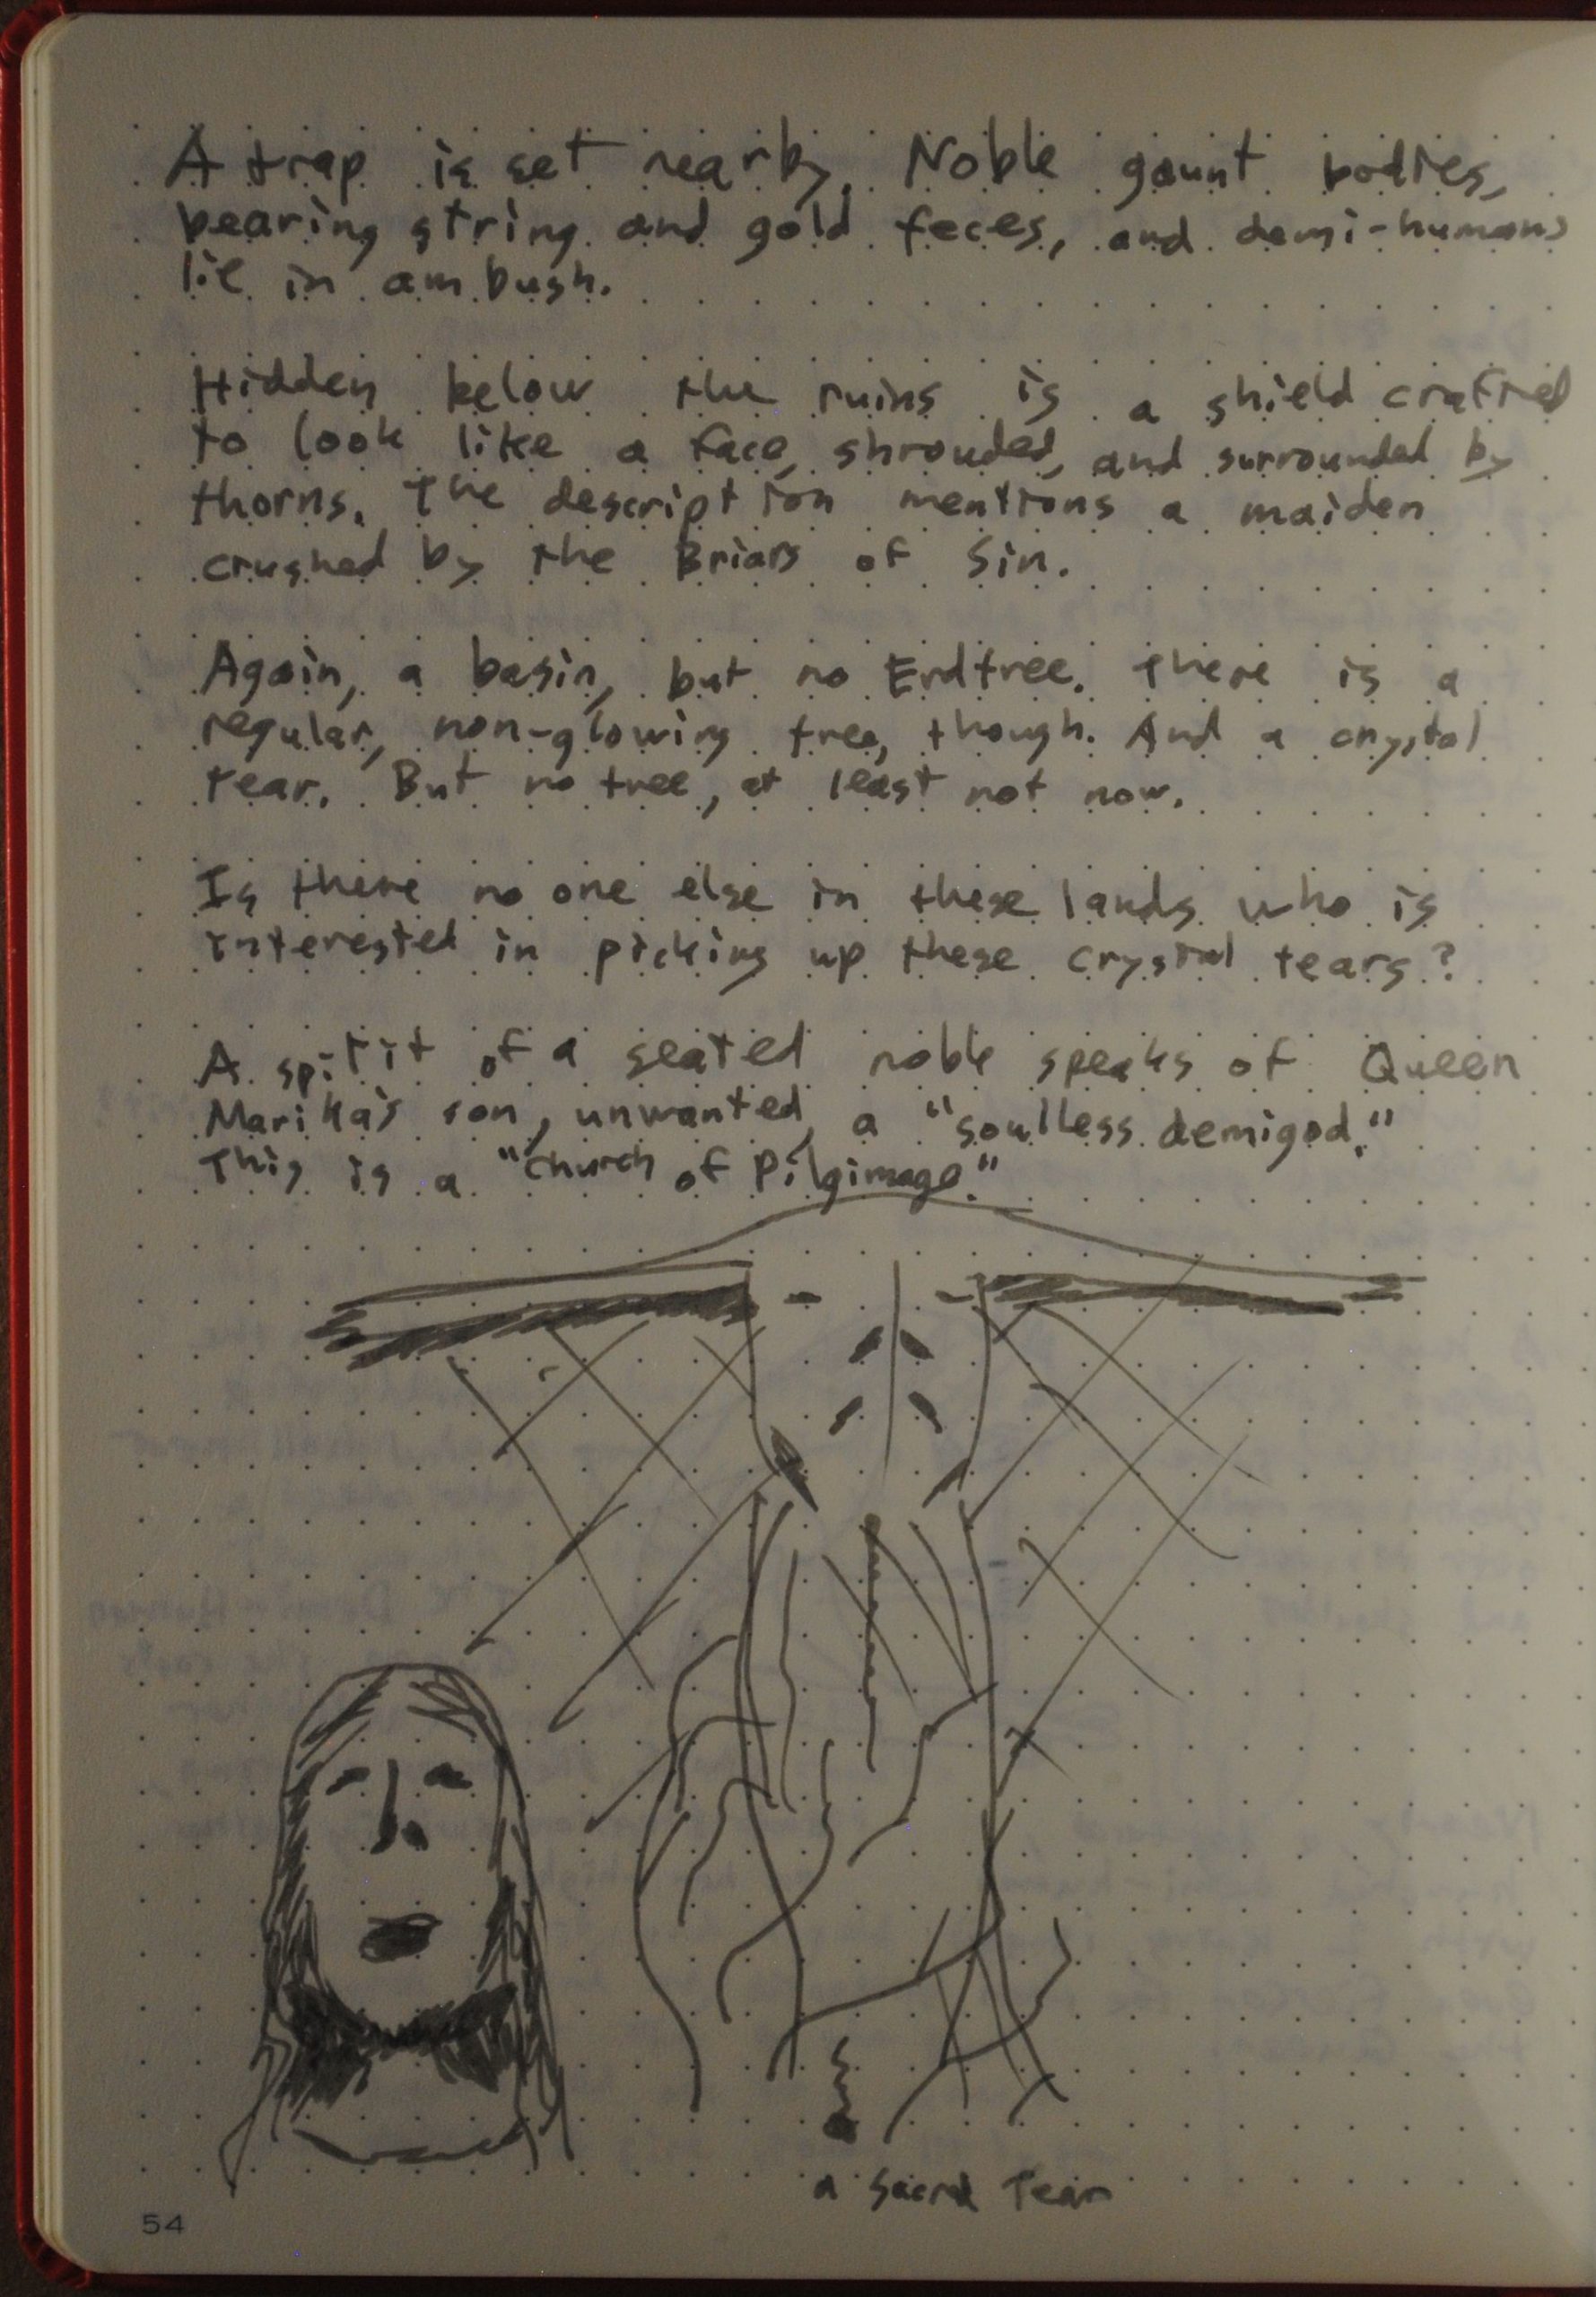 A trap is set nearby. Noble gaunt bodies,
bearing string and gold feces, and demi-humans
lie in ambush.
Hidden below the ruins is a shield crafted
to look like a face, shrouded, and surrounded by
thorns. The description mentions a maiden
crushed by the Briars of Sin.
Again, a basin, but no Erdtree. There is a
regular, non-glowing tree, though. And a crystal
tear. But no tree, at least not now.
Is there no one else in these lands who is
interested in picking up these crystal tears?
A spirit of a seated noble speaks of Queen
Marika's son, unwanted, a "soulless demigod."
This is a "Church of Pilgimage."
a Sacred Tear
54